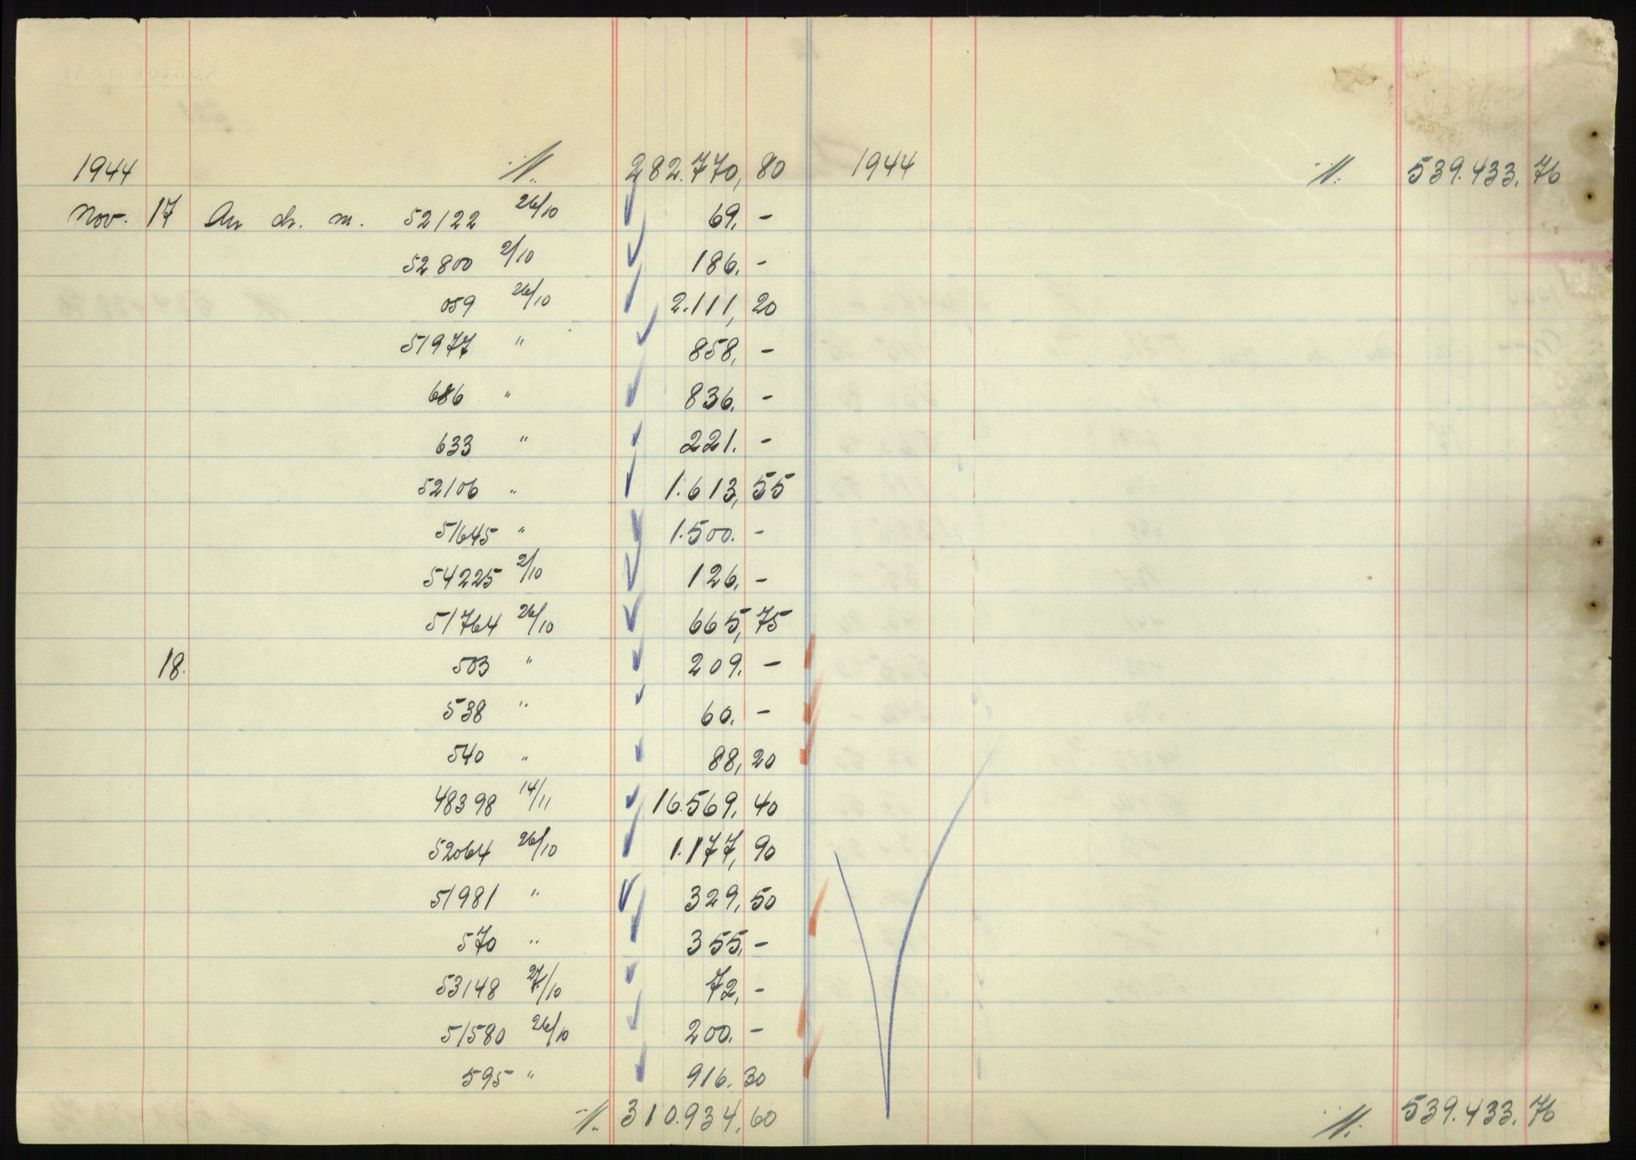 1944 ./. 282.770,80
Nov. 17 An ch. m. 52122 26/10 69.-
52800 2/10 186.-
059 26/10 2.111,20
51977 " 858,-
686 " 836.-
633 " 221.-
52106 " 1.613,55
51645 " 1.500.-
54225 2/10 126,-
51764 26/10 665,75
18. 503 " 209.-
538 " 60.-
540 " 88,20
48398 14/11 16.569,40
52064 26/10 1.177,90
51981 " 329,50
570 " 355,-
53148 27/10 72,-
51580 26/10 200.-
595 " 916.30
./. 310.934,60
1944 ./. 539.433.76
./. 539.433.76